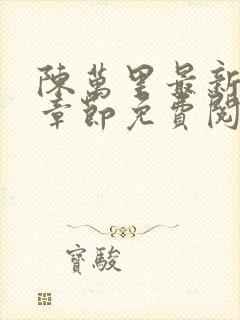 陳萬里最新
章節免費閱
寶駿